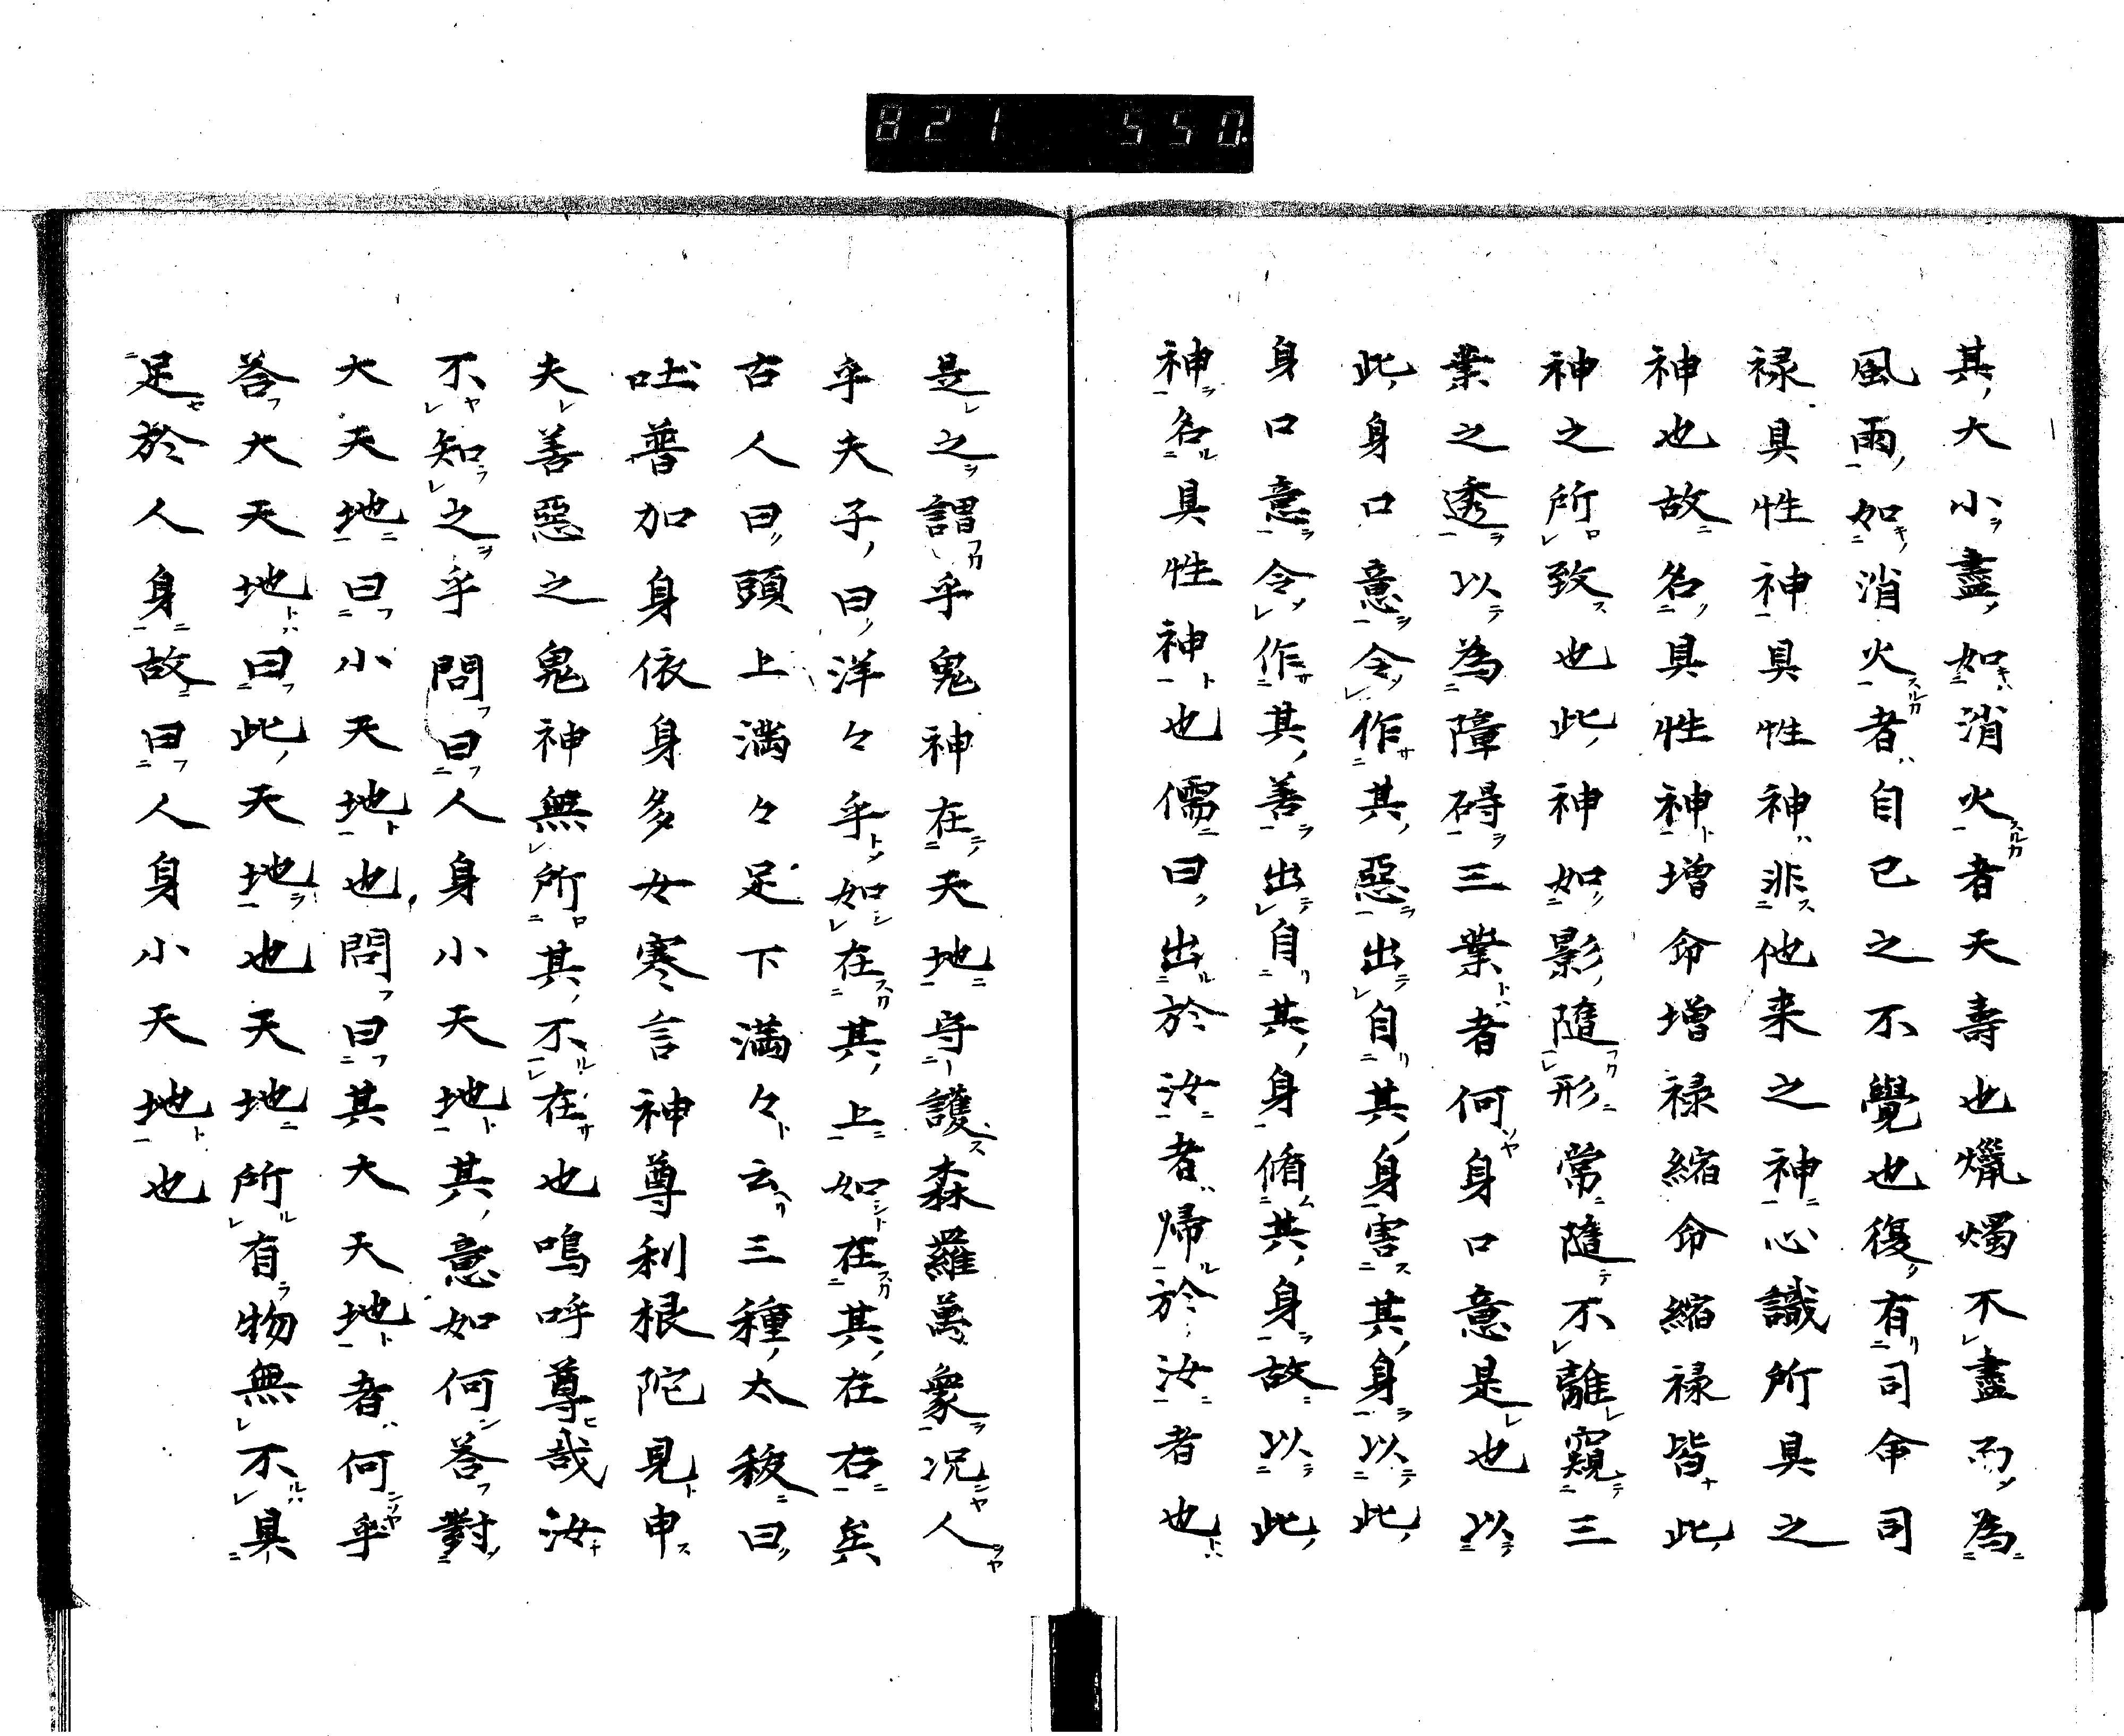 821 550.
其大小盡如消火者天壽也爉燭不盡而為
風雨如消火者自已之不覺也復有司命司
禄具性神具性神非他来之神心識所具之
神也故名具性神增命增禄縮命縮禄皆此
神之所致也此神如影隨形常隨不離窺三
業之透以為障碍三業者何身口意是也以
此身口意令作其惡出自其身害其身以此
身口意令作其善出自其身脩其身故以此
神名具性神也儒曰出於汝者歸於汝者也
是之謂乎鬼神在天地守護森羅萬象况人
乎夫子曰洋々乎如在其上如在其在右矣
古人曰頭上満々足下満々云三種太秡曰
吐普加身依身多女寒言神尊利根陀見申
夫善惡之鬼神無所其不在也嗚呼尊哉汝
不知之乎問曰人身小天地其意如何荅對
大天地曰小天地也問曰其大天地者何乎
荅大天地曰此天地也天地所有物無不具
足於人身故曰人身小天地也